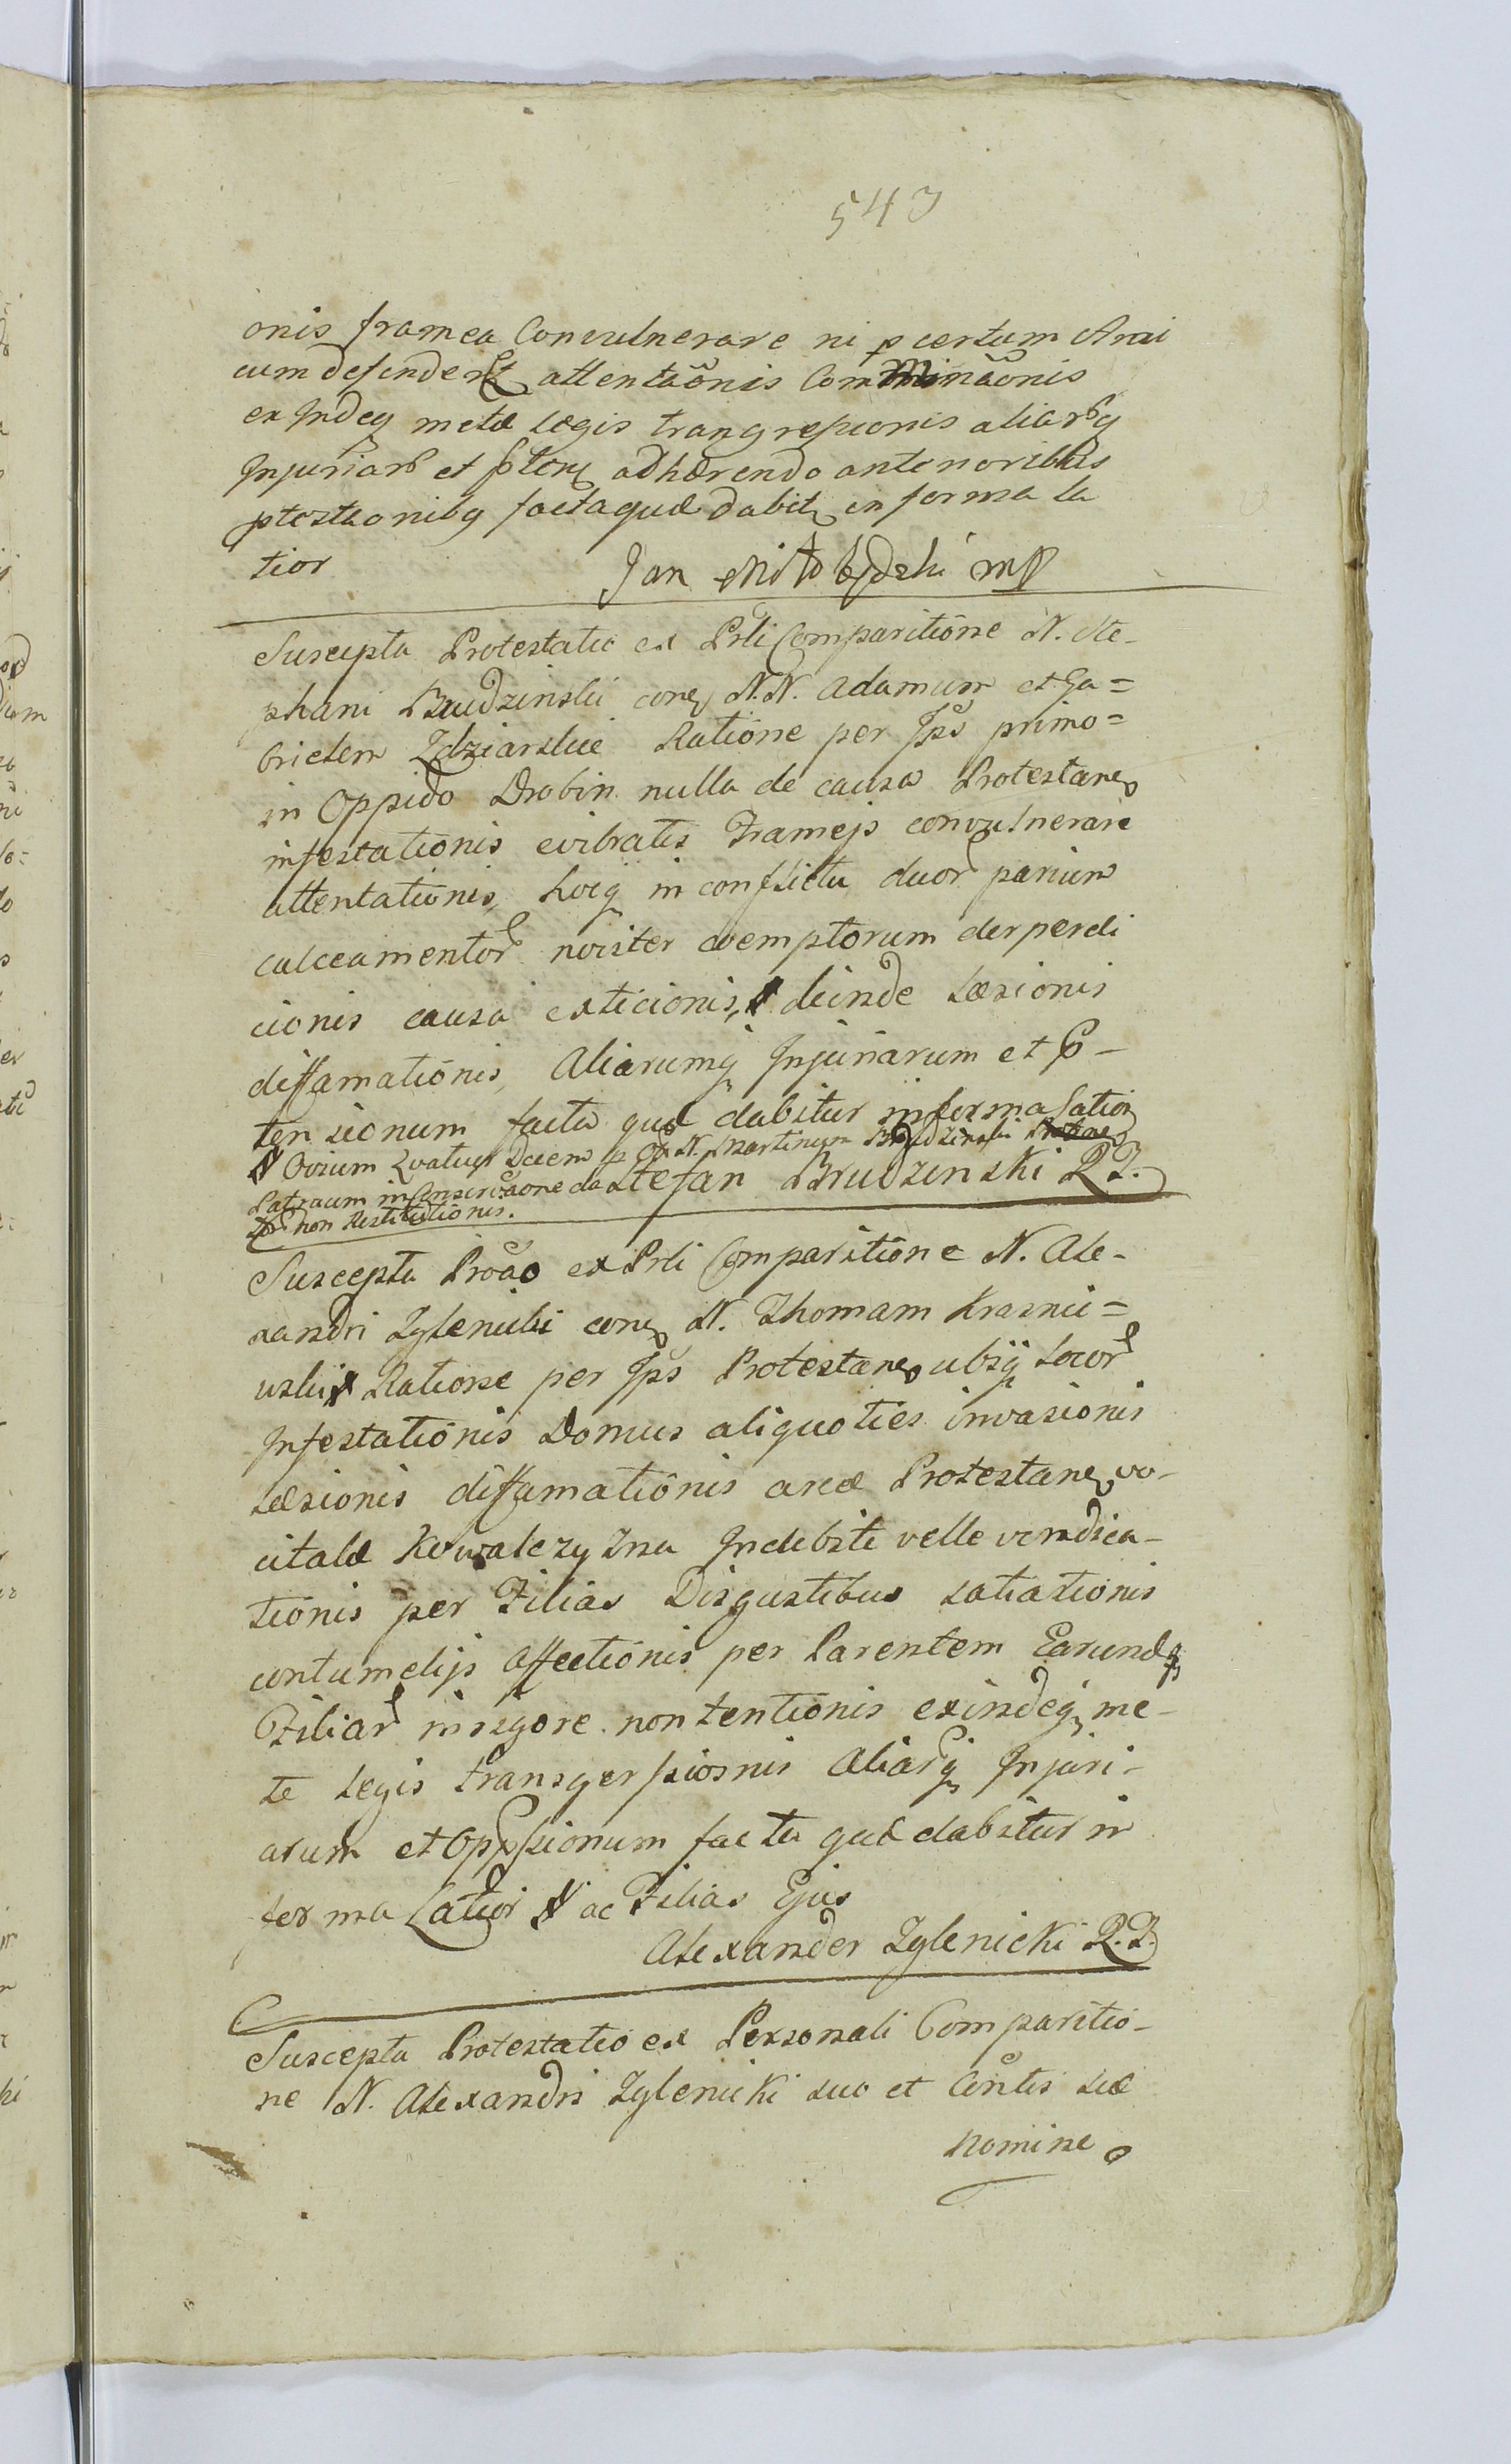 543
onis framea Convulnerare ni p certum Ami
cum defender attentaõnis Comminaõnis
ex Indeq metæ Legis trangressionis aliarq
Injuriar et adhærendo antenoribus
ptestaonibq facta quæ dabit in forma la
tior Jan
Suscepta Protestatio ex Prli Comparitione N. Ste-
phani Brudzinski cone N.N. Adamum et Ga=
brielem Zdziarskie Ratione per Ips primo=
in Oppido Drobin nulla de causa Protestane
infestationis evibratis Frameis convulnerare
attentationis, hocq in conflictu duor parium
calceamentor noviter coemptorum deperdi
cionis causa exticionis, deinde Læsionis
diffamationis, Aliarumq Injuriarum et P-
tensionum facta quæ dabitur in forma Latior
Ovium Qvatuor Decem p N. Martinum Brudzinski
Patruum in Conservaone
non Restitutionis.
Stefan Brudzinski
Suscepta Proão ex Prli Comparitione N. Ale-
xandri Zglenicki cone N. Thomam Krasnie=
wski Ratione per Ips Protestane ubiq Locor
Infestationis Domus aliquoties invasionis
Læsionis diffamationis areæ Protestane vo-
citatæ Kowalczyzna Indebite velle vendica-
tionis per Filias Disgustibus satiationis
contumelijs affectionis per Parentem Earundq
Filiar in rigore non tentionis exindeq me-
te Legis transgerssiosnis Aliarq Injuri-
arum et Oppssionum facta quæ dabitur in
forma Latior ac Filias Ejus
Alexander Zglenicki
Suscepta Protestatio ex Personali Comparitio-
ne N. Alexandri Zglenicki suo et Contis suæ
Nomine